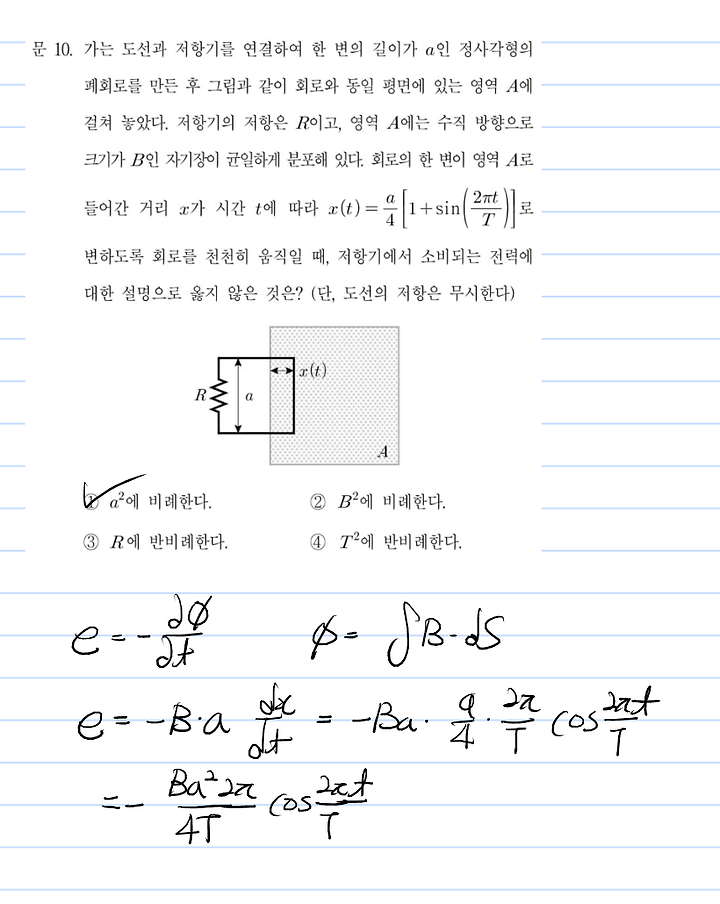 문 10. 가는 도선과 저항기를 연결하여 한 변의 길이가 a인 정사각형의
폐회로를 만든 후 그림과 같이 회로와 동일 평면에 있는 영역 A에
걸쳐 놓았다. 저항기의 저항은 R이고, 영역 A에는 수직 방향으로
크기가 B인 자기장이 균일하게 분포해 있다. 회로의 한 변이 영역 A로
들어간 거리 x가 시간 t에 따라 x(t) = a/4 [1+sin(2πt/T)]로
변하도록 회로를 천천히 움직일 때, 저항기에서 소비되는 전력에
대한 설명으로 옳지 않은 것은? (단, 도선의 저항은 무시한다)
x(t)
R a
A
① a²에 비례한다. ② B²에 비례한다.
③ R에 반비례한다. ④ T²에 반비례한다.
e = - ∂φ/∂t φ = ∫B·dS
e = -B·a dx/dt = -Ba · a/4 · 2π/T cos 2πt/T
= - Ba²2π/4T cos 2πt/T